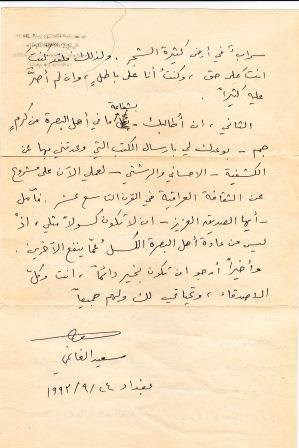 سراباً في أرض كثيرة الشجر. ولذلك فلقد كنت
انت على حق، وكنتُ أنا على باطل، وإن لم أصرَّ
عليه كثيراً.
الثاني، ان أطالبك - بشفاعة ما في أهل البصرة من كرمٍ
جم - بوعدك لي بارسال الكتب التي وعدتني بها عن
الكشفية - الاحسائي والرشتي - لعملي الآن على مشروع
عن الثقافة العراقية في القرن التاسع عشر. فآمل
- أيها الصديق العزيز - ان لا تكون كسولاً مثلي، اذْ
ليس من عادة أهل البصرة الكسل عمّا ينفع الآخرين.
وأخيراً أرجو ان تكون بخير دائماً، انت وكلّ
الاصدقاء، وتحياتي لك ولهم جميعاً
سعيد الغانمي
بغداد ٢٤ / ٩ / ١٩٩٢